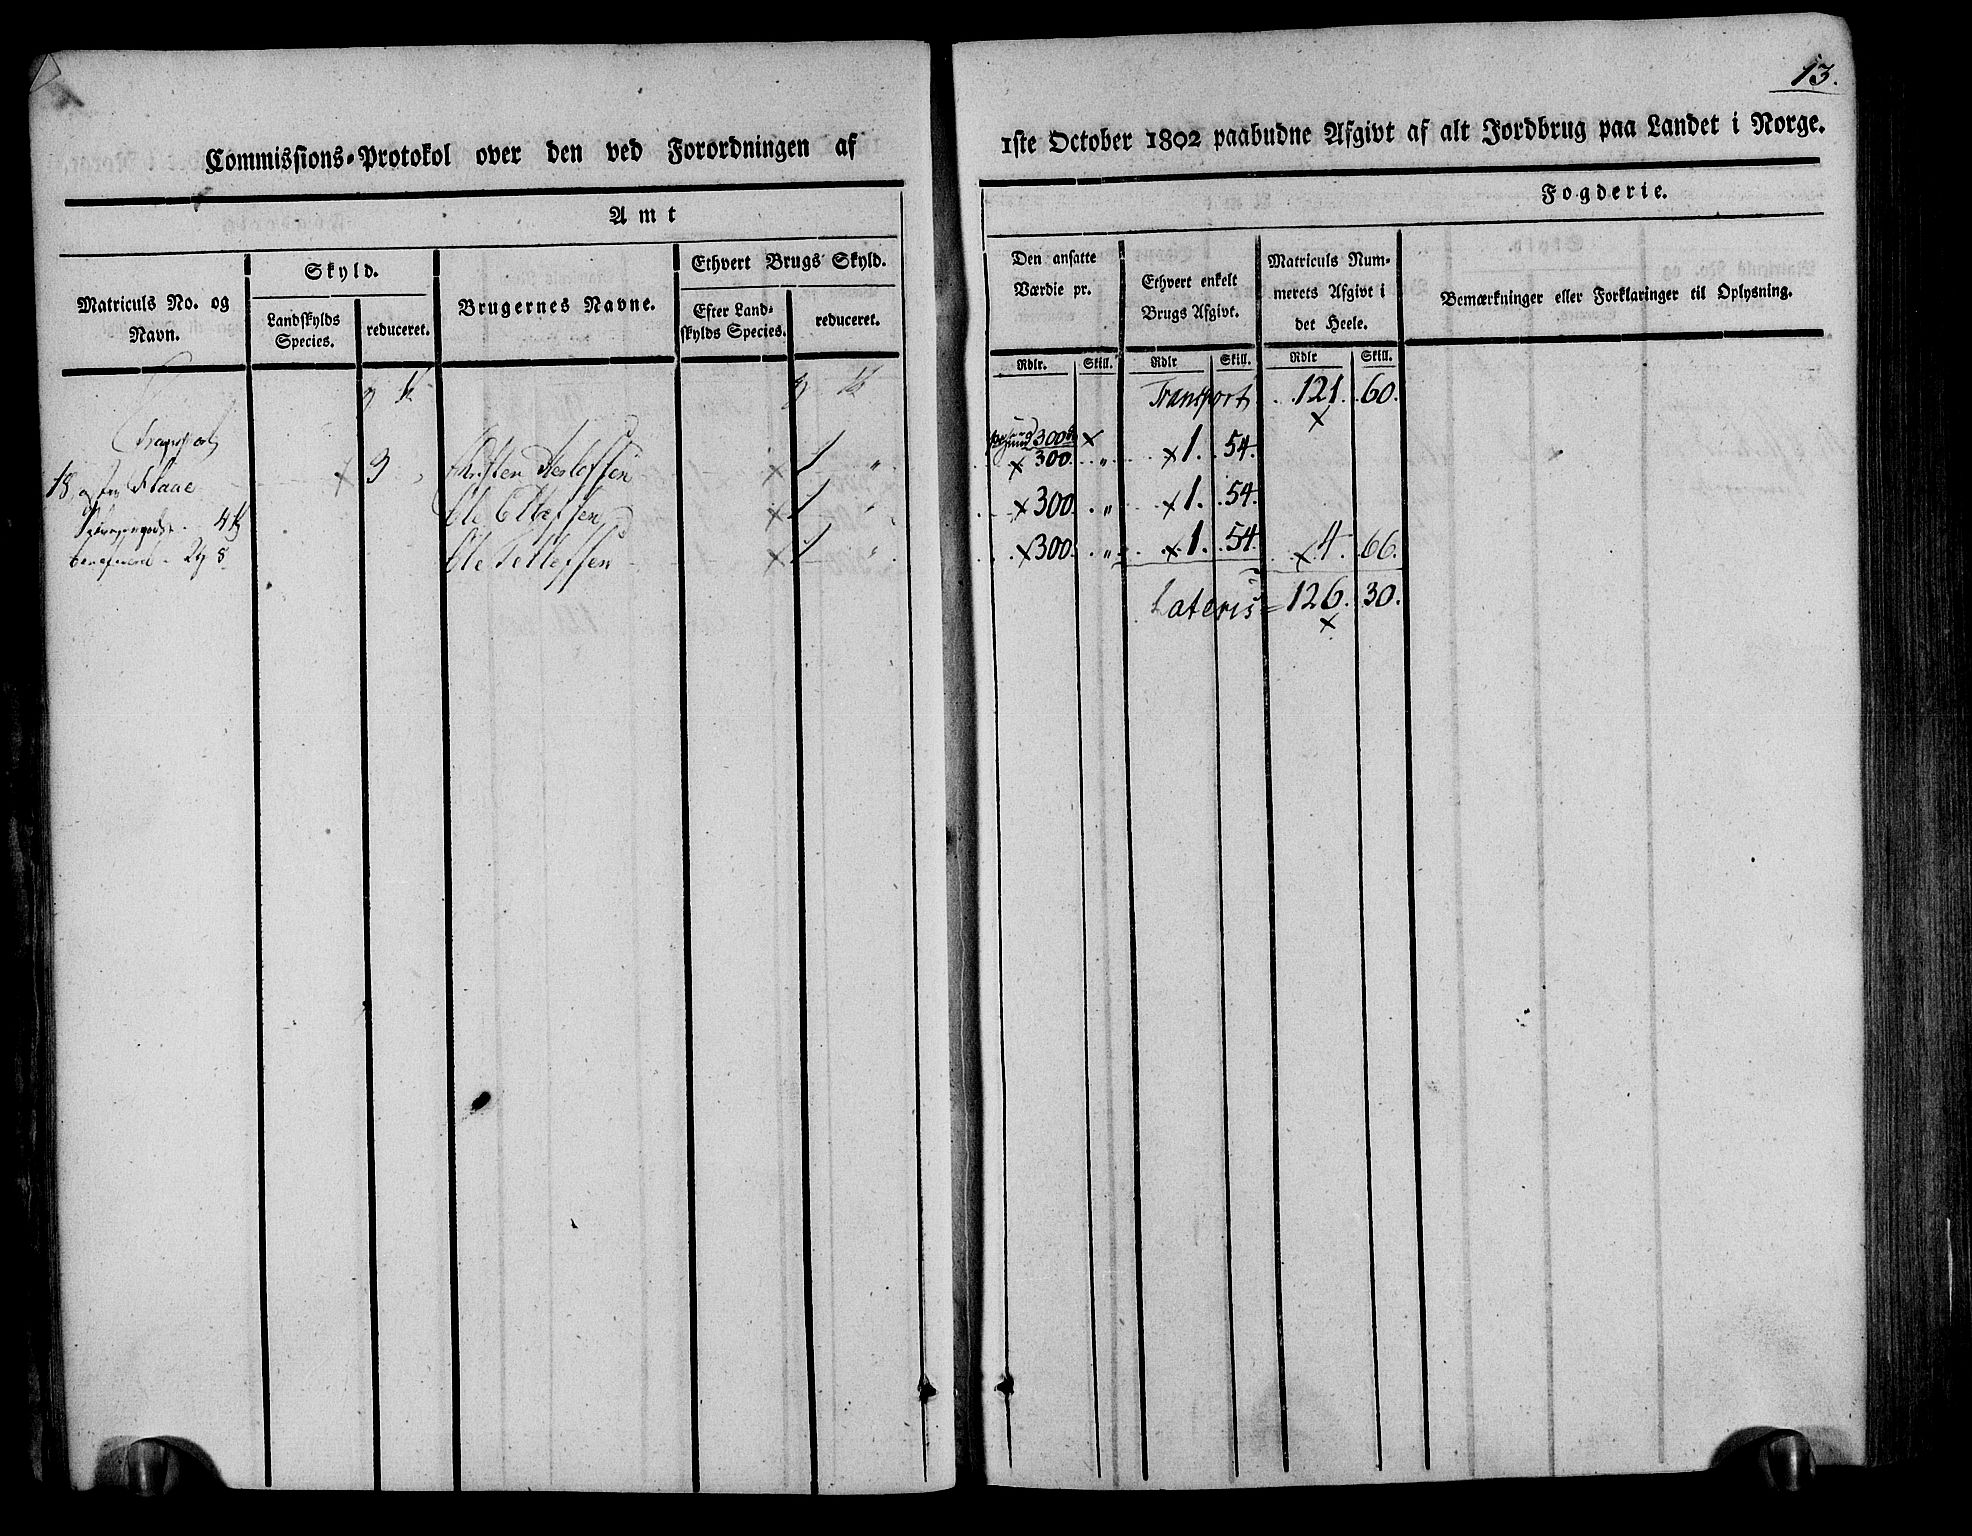 13.
Commissions-Protokol over den ved Forordningen af
1ste October 1802 paabudne Afgivt af alt Jordbrug paa Landet i Norge.
Amt
Fogderie.
Matriculs No. og Navn.
Skyld.
Landskylds Species.
reduceret.
Brugernes Navne.
Ethvert Brugs Skyld.
Efter Landskylds Species.
reduceret.
Den ansatte Værdie pr.
Ethvert enkelt Brugs Afgivt.
Matriculs Nummerets Afgivt i det Heele.
Bemærkninger eller Forklaringer til Oplysning.
Rdlr. Skill. Rdlr Skill. Rdlr Skill.
Transport 121. 60.
Transport
18 Klaae 3 1 300. 1. 54.
Ole 1 300. 1. 54.
Ole Tellefsen 1 300. 1. 54. 4. 66.
Lateris 126. 30.